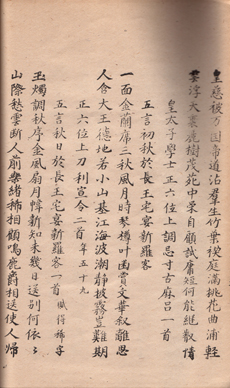 皇慈被万国帝道沾群生竹葉禊庭満桃花曲浦軽
雲浮天裏麗樹茂苑中栄自顧試庸短何能継叡情
皇太子学士正六位上調忌寸古麻呂一首
五言初秋於長王宅宴新羅客
一面金蘭席三秋風月時琴樽叶幽賞文華叙離思
人含大王徳地若小山基江海波潮静披霧豈難期
正六位上刀利宣令二首年五十九
五言秋日於長王宅宴新羅客一首 賦得稀字
玉燭調秋序金風扇月幃新知未幾日送別何依々
山際愁雲断人前楽緒稀相顧鳴鹿爵相送使人帰